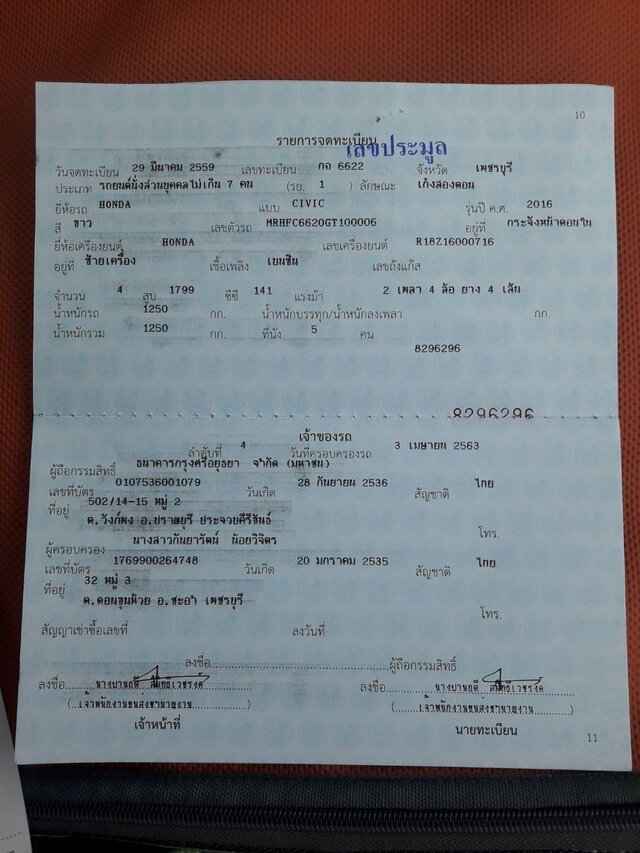 10
รายการจดทะเบียน
เลขประมูล
วันจดทะเบียน 29 มีนาคม 2559 เลขทะเบียน กจ 6622 จังหวัด เพชรบุรี
ประเภท รถยนต์นั่งส่วนบุคคลไม่เกิน 7 คน (รย. 1 ) ลักษณะ เก๋งสองตอน
ยี่ห้อรถ HONDA แบบ CIVIC รุ่นปี ค.ศ. 2016
สี ขาว เลขตัวรถ MRHFC6620GT100006 อยู่ที่ กระจังหน้าตอนใน
ยี่ห้อเครื่องยนต์ HONDA เลขเครื่องยนต์ R18Z16000716
อยู่ที่ ซ้ายเครื่อง เชื้อเพลิง เบนซิน เลขถังแก๊ส
จำนวน 4 สูบ 1799 ซีซี 141 แรงม้า 2 เพลา 4 ล้อ ยาง 4 เส้น
น้ำหนักรถ 1250 กก. น้ำหนักบรรทุก/น้ำหนักลงเพลา กก.
น้ำหนักรวม 1250 กก. ที่นั่ง 5 คน
8296296
8296296
เจ้าของรถ
ลำดับที่ 4 วันที่ครอบครองรถ 3 เมษายน 2563
ผู้ถือกรรมสิทธิ์ ธนาคารกรุงศรีอยุธยา จำกัด (มหาชน)
เลขที่บัตร 0107536001079 วันเกิด 28 กันยายน 2536 สัญชาติ ไทย
ที่อยู่ 502/14-15 หมู่ 2
ต.วังก์พง อ.ปราณบุรี ประจวบคีรีขันธ์ โทร.
ผู้ครอบครอง นางสาวกันยารัตน์ น้อยวิจิตร
เลขที่บัตร 1769900264748 วันเกิด 20 มกราคม 2535 สัญชาติ ไทย
ที่อยู่ 32 หมู่ 3
ต.ดอนขุนห้วย อ.ชะอำ เพชรบุรี
โทร.
สัญญาเช่าซื้อเลขที่ ลงวันที่
ลงชื่อ ผู้ถือกรรมสิทธิ์
ลงชื่อ ลงชื่อ
(เจ้าพนักงานขนส่งชำนาญงาน) (เจ้าพนักงานขนส่งชำนาญงาน)
เจ้าหน้าที่ นายทะเบียน
11